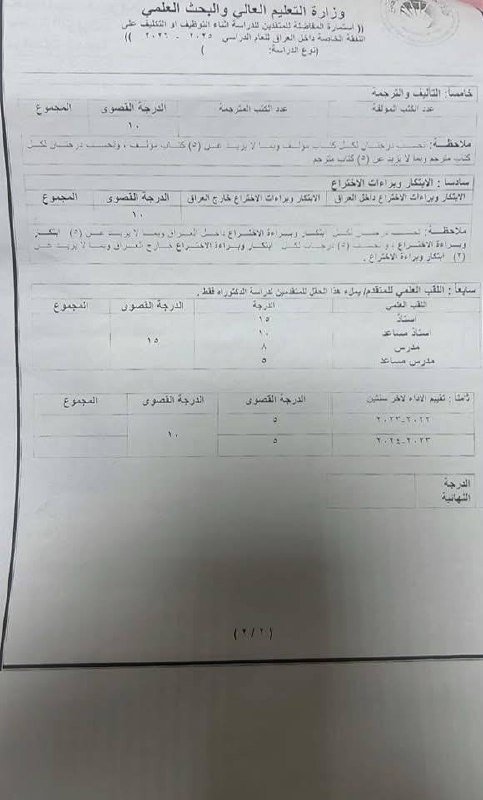 وزارة التعليم العالي والبحث العلمي
(( استمارة المفاضلة للمتقدمين للدراسة اثناء التوظيف او التكليف على
النفقة الخاصة داخل العراق للعام الدراسي ٢٠٢٥ - ٢٠٢٦ ))
(نوع الدراسة: )
خامساً: التأليف والترجمة
عدد الكتب المؤلفة عدد الكتب المترجمة الدرجة القصوى المجموع
١٠
ملاحظة: تحسب درجتان لكل كتاب مؤلف وبما لا يزيد عن (٥) كتاب مؤلف ، وتحسب درجتان لكل
كتاب مترجم وبما لا يزيد عن (٥) كتاب مترجم
سادساً : الابتكار وبراءات الاختراع
الابتكار وبراءات الاختراع داخل العراق الابتكار وبراءات الاختراع خارج العراق الدرجة القصوى المجموع
١٠
ملاحظة: تحسب درجتين لكل ابتكار وبراءة الاختراع داخل العراق وبما لا يزيد عن (٥) ابتكار
وبراءة الاختراع ، وتحسب (٥) درجات لكل ابتكار وبراءة الاختراع خارج العراق وبما لا يزيد عن
(٢) ابتكار وبراءة الاختراع .
سابعاً : اللقب العلمي للمتقدم/ يملء هذا الحقل للمتقدمين لدراسة الدكتوراه فقط .
اللقب العلمي الدرجة الدرجة القصوى المجموع
استاذ ١٥
استاذ مساعد ١٠ ١٥
مدرس ٨
مدرس مساعد ٥
ثامناً : تقييم الاداء لاخر سنتين الدرجة القصوى الدرجة القصوى المجموع
٢٠٢٢-٢٠٢٣ ٥
١٠
٢٠٢٣-٢٠٢٤ ٥
الدرجة
النهائية
(٢/٢)